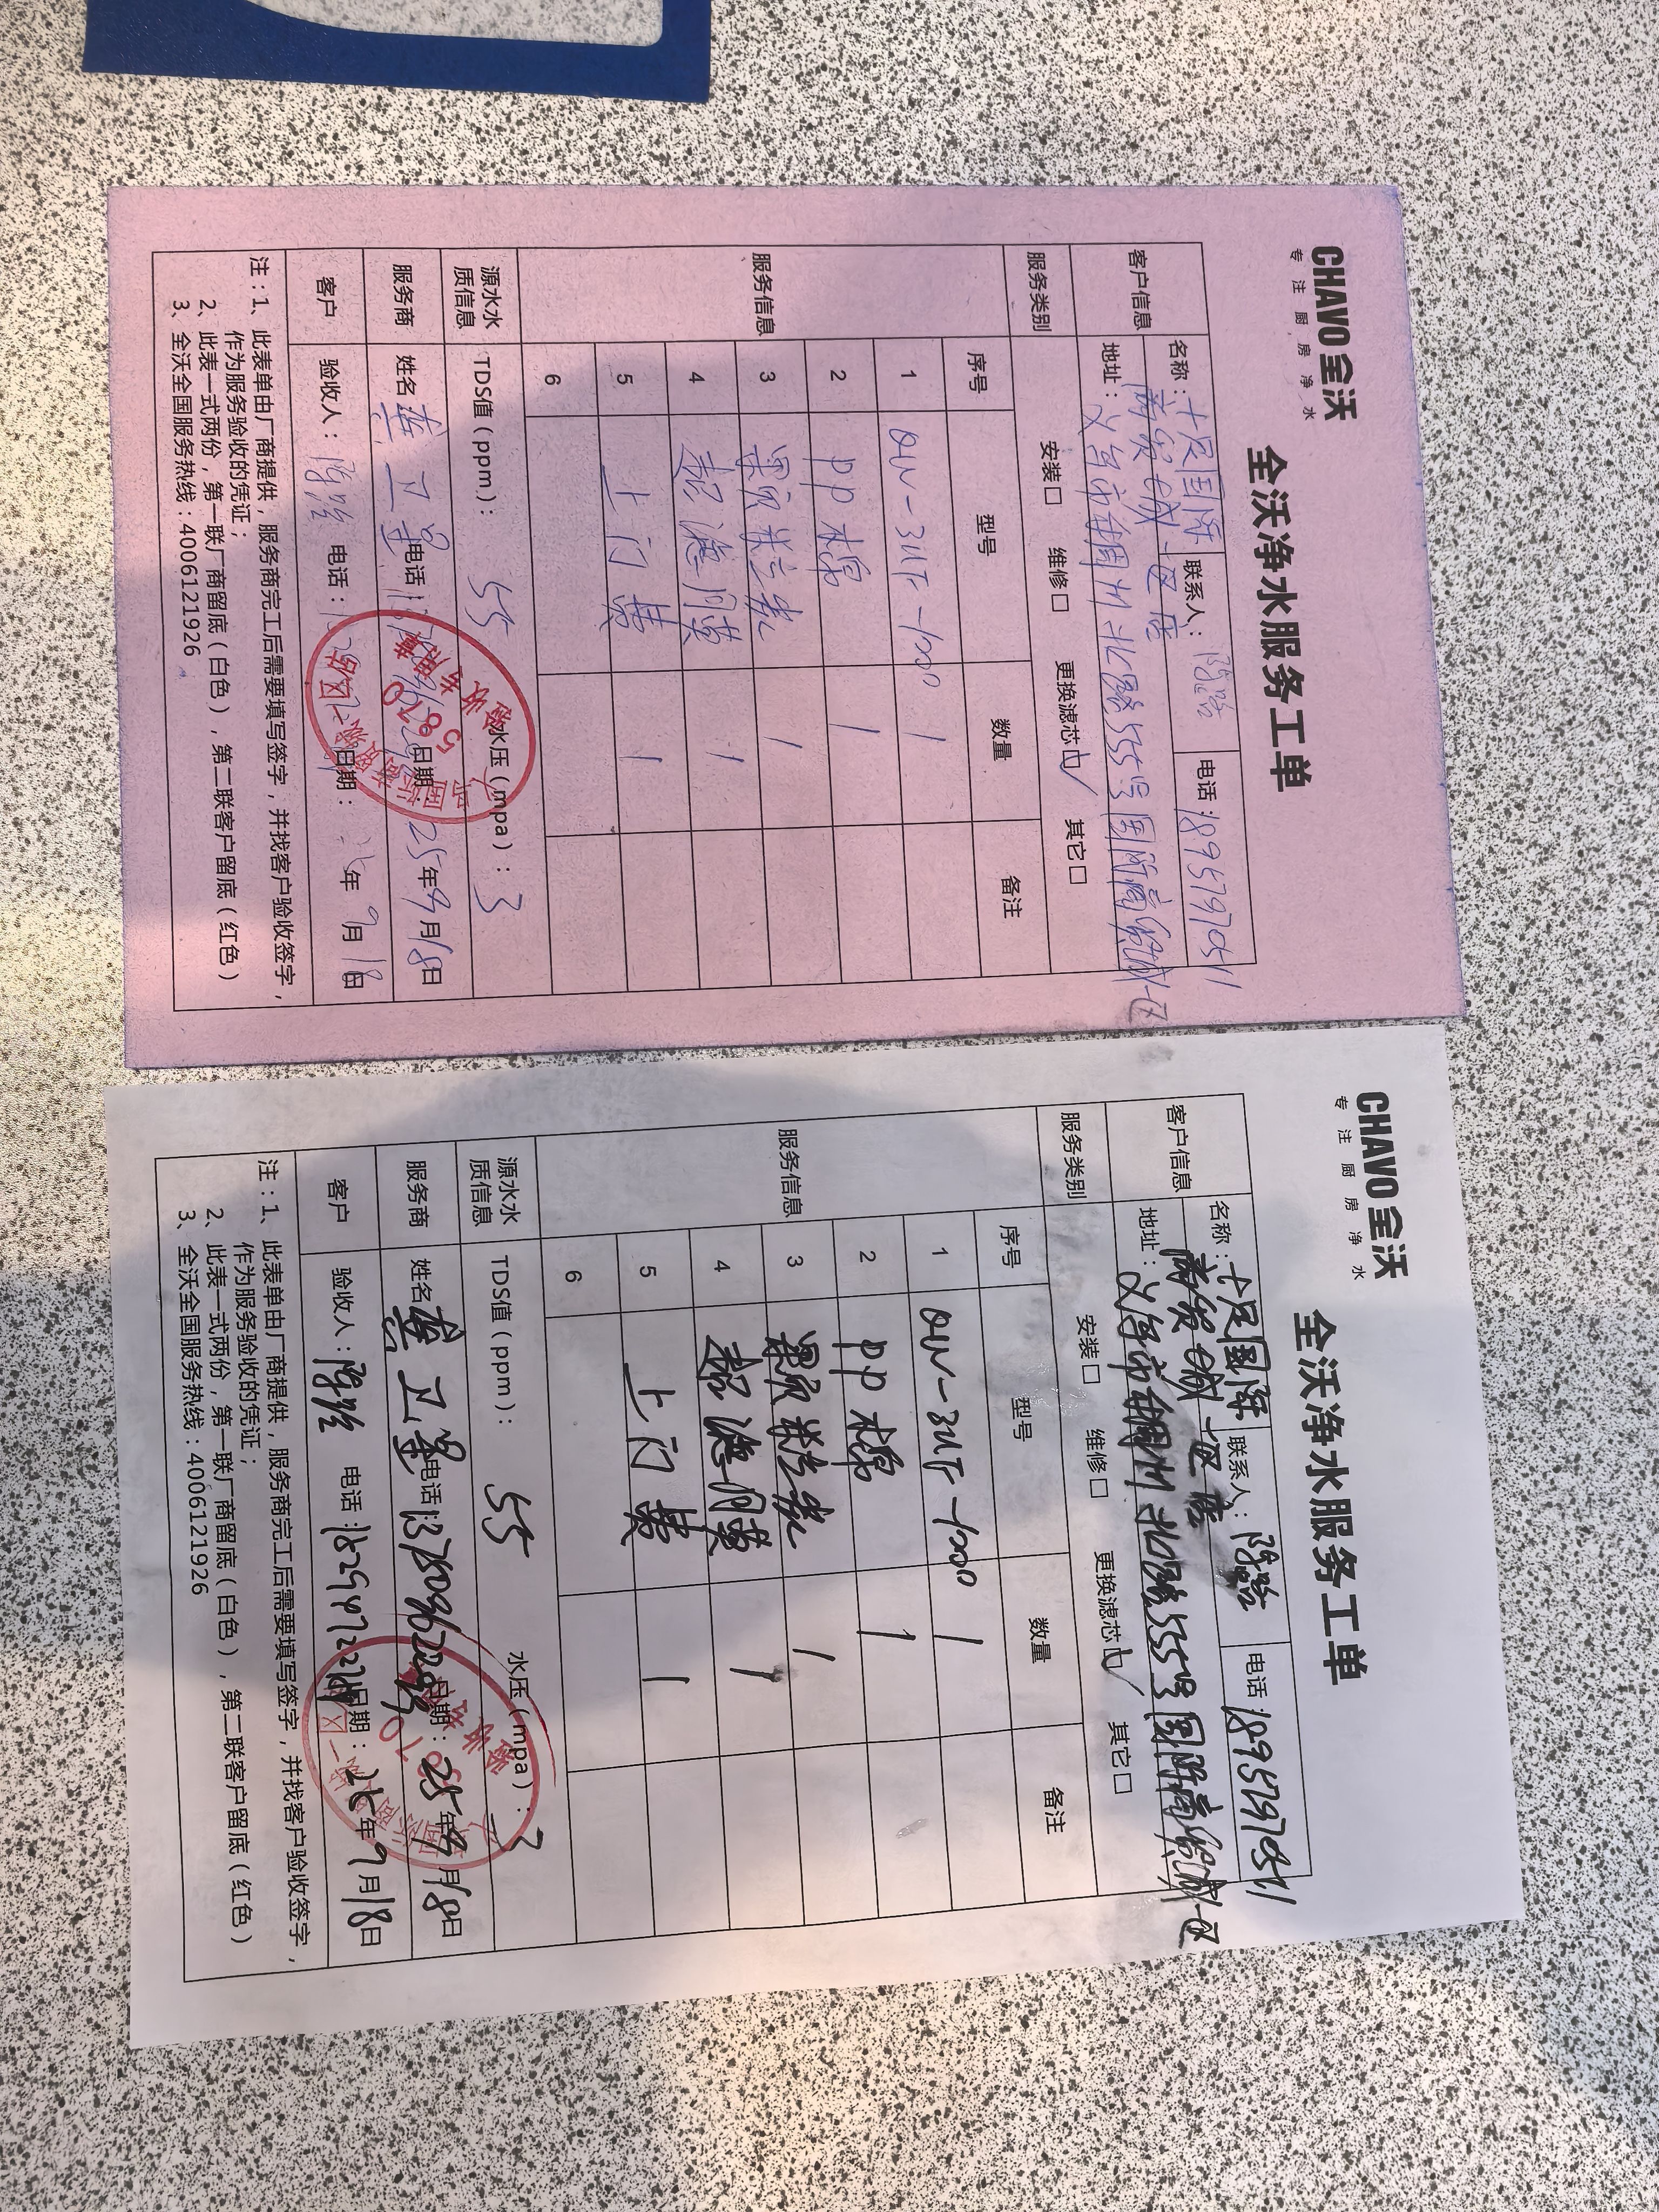 CHAVO 全沃
专注厨房净水
全沃净水服务工单
客户信息 名称：大足国际商贸城一区店 联系人： 电话：18957970511
地址：义乌市稠州北路555号国际商贸城一区
服务类别 安装□ 维修□ 更换滤芯☑ 其它□
服务信息 序号 型号 数量 备注
1 QW-3UF-100 1
2 PP棉 1
3 颗粒炭 1
4 超滤膜 1
5 上门费 1
6
源水水质信息 TDS值（ppm）： 55 水压（mpa）： 3
服务商 姓名 电话： 日期：25年9月18日
客户 验收人：陈 电话： 日期： 年9月18日
注：1、此表单由厂商提供，服务商完工后需要填写签字，并找客户验收签字，
作为服务验收的凭证；
2、此表一式两份，第一联厂商留底（白色），第二联客户留底（红色）
3、全沃全国服务热线：4006121926
5870
验收专用章
CHAVO 全沃
专注厨房净水
全沃净水服务工单
客户信息 名称：大足国际商贸城一区店 联系人： 电话：18957970511
地址：义乌市稠州北路555号国际商贸城一区
服务类别 安装□ 维修□ 更换滤芯☑ 其它□
服务信息 序号 型号 数量 备注
1 QW-3UF-100 1
2 PP棉 1
3 颗粒炭 1
4 超滤膜 1
5 上门费 1
6
源水水质信息 TDS值（ppm）： 55 水压（mpa）： 3
服务商 姓名 电话： 日期：25年9月18日
客户 验收人：陈 电话： 日期：25年9月18日
注：1、此表单由厂商提供，服务商完工后需要填写签字，并找客户验收签字，
作为服务验收的凭证；
2、此表一式两份，第一联厂商留底（白色），第二联客户留底（红色）
3、全沃全国服务热线：4006121926